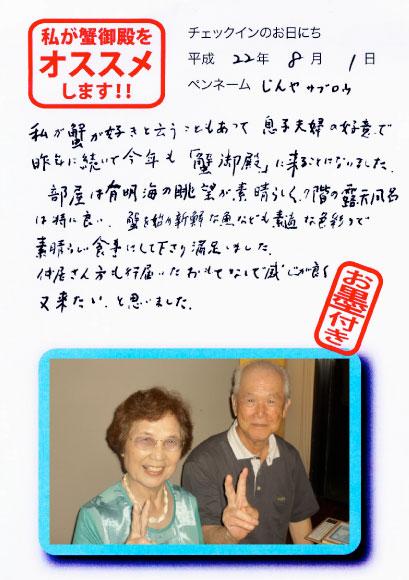 私が蟹御殿を
オススメ
します!!
チェックインのお日にち
平成 22年 8月 1日
ペンネーム じんやサブロウ
私が蟹が好きと云うこともあって 息子夫婦の好意で
昨年に続いて今年も「蟹御殿」に来ることになりました.
部屋は有明海の眺望が素晴らしく、7階の露天風呂
は特に良い. 蟹を始め新鮮な魚なども素適な色彩りで
素晴らしい食事にして下さり満足しました.
仲居さん方も行届いたおもてなしで感じが良く
又来たい. と思いました.
お墨付き